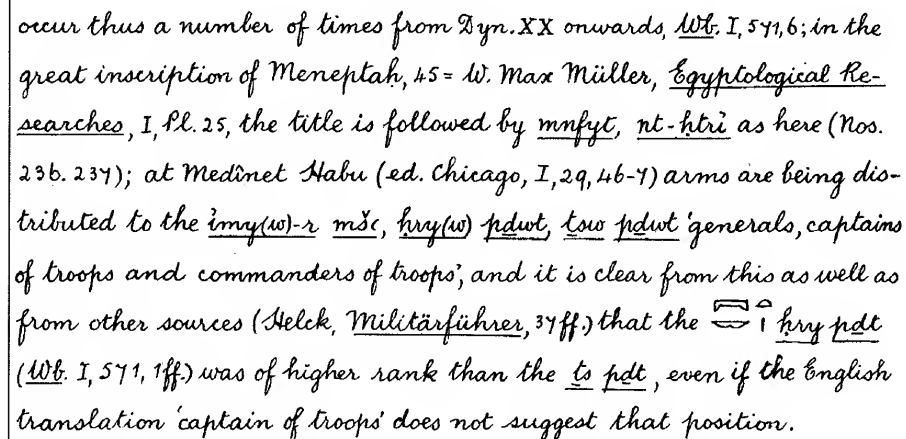 occur thus a number of times from Dyn. XX onwards, Wb. I, 571, 6; in the
great inscription of Meneptaḥ, 45 = W. Max Müller, Egyptological Re-
searches, I, Pl. 25, the title is followed by mnfyt, nt-ḥtrỉ as here (Nos.
236. 237); at Medînet Habu (ed. Chicago, I, 29, 46-7) arms are being dis-
tributed to the ỉmy(w)-r mšꜥ, ḥry(w) pḏwt, ṯsw pḏwt 'generals, captains
of troops and commanders of troops', and it is clear from this as well as
from other sources (Helck, Militärführer, 37 ff.) that the ḥry pḏt
(Wb. I, 571, 1 ff.) was of higher rank than the ṯs pḏt, even if the English
translation 'captain of troops' does not suggest that position.